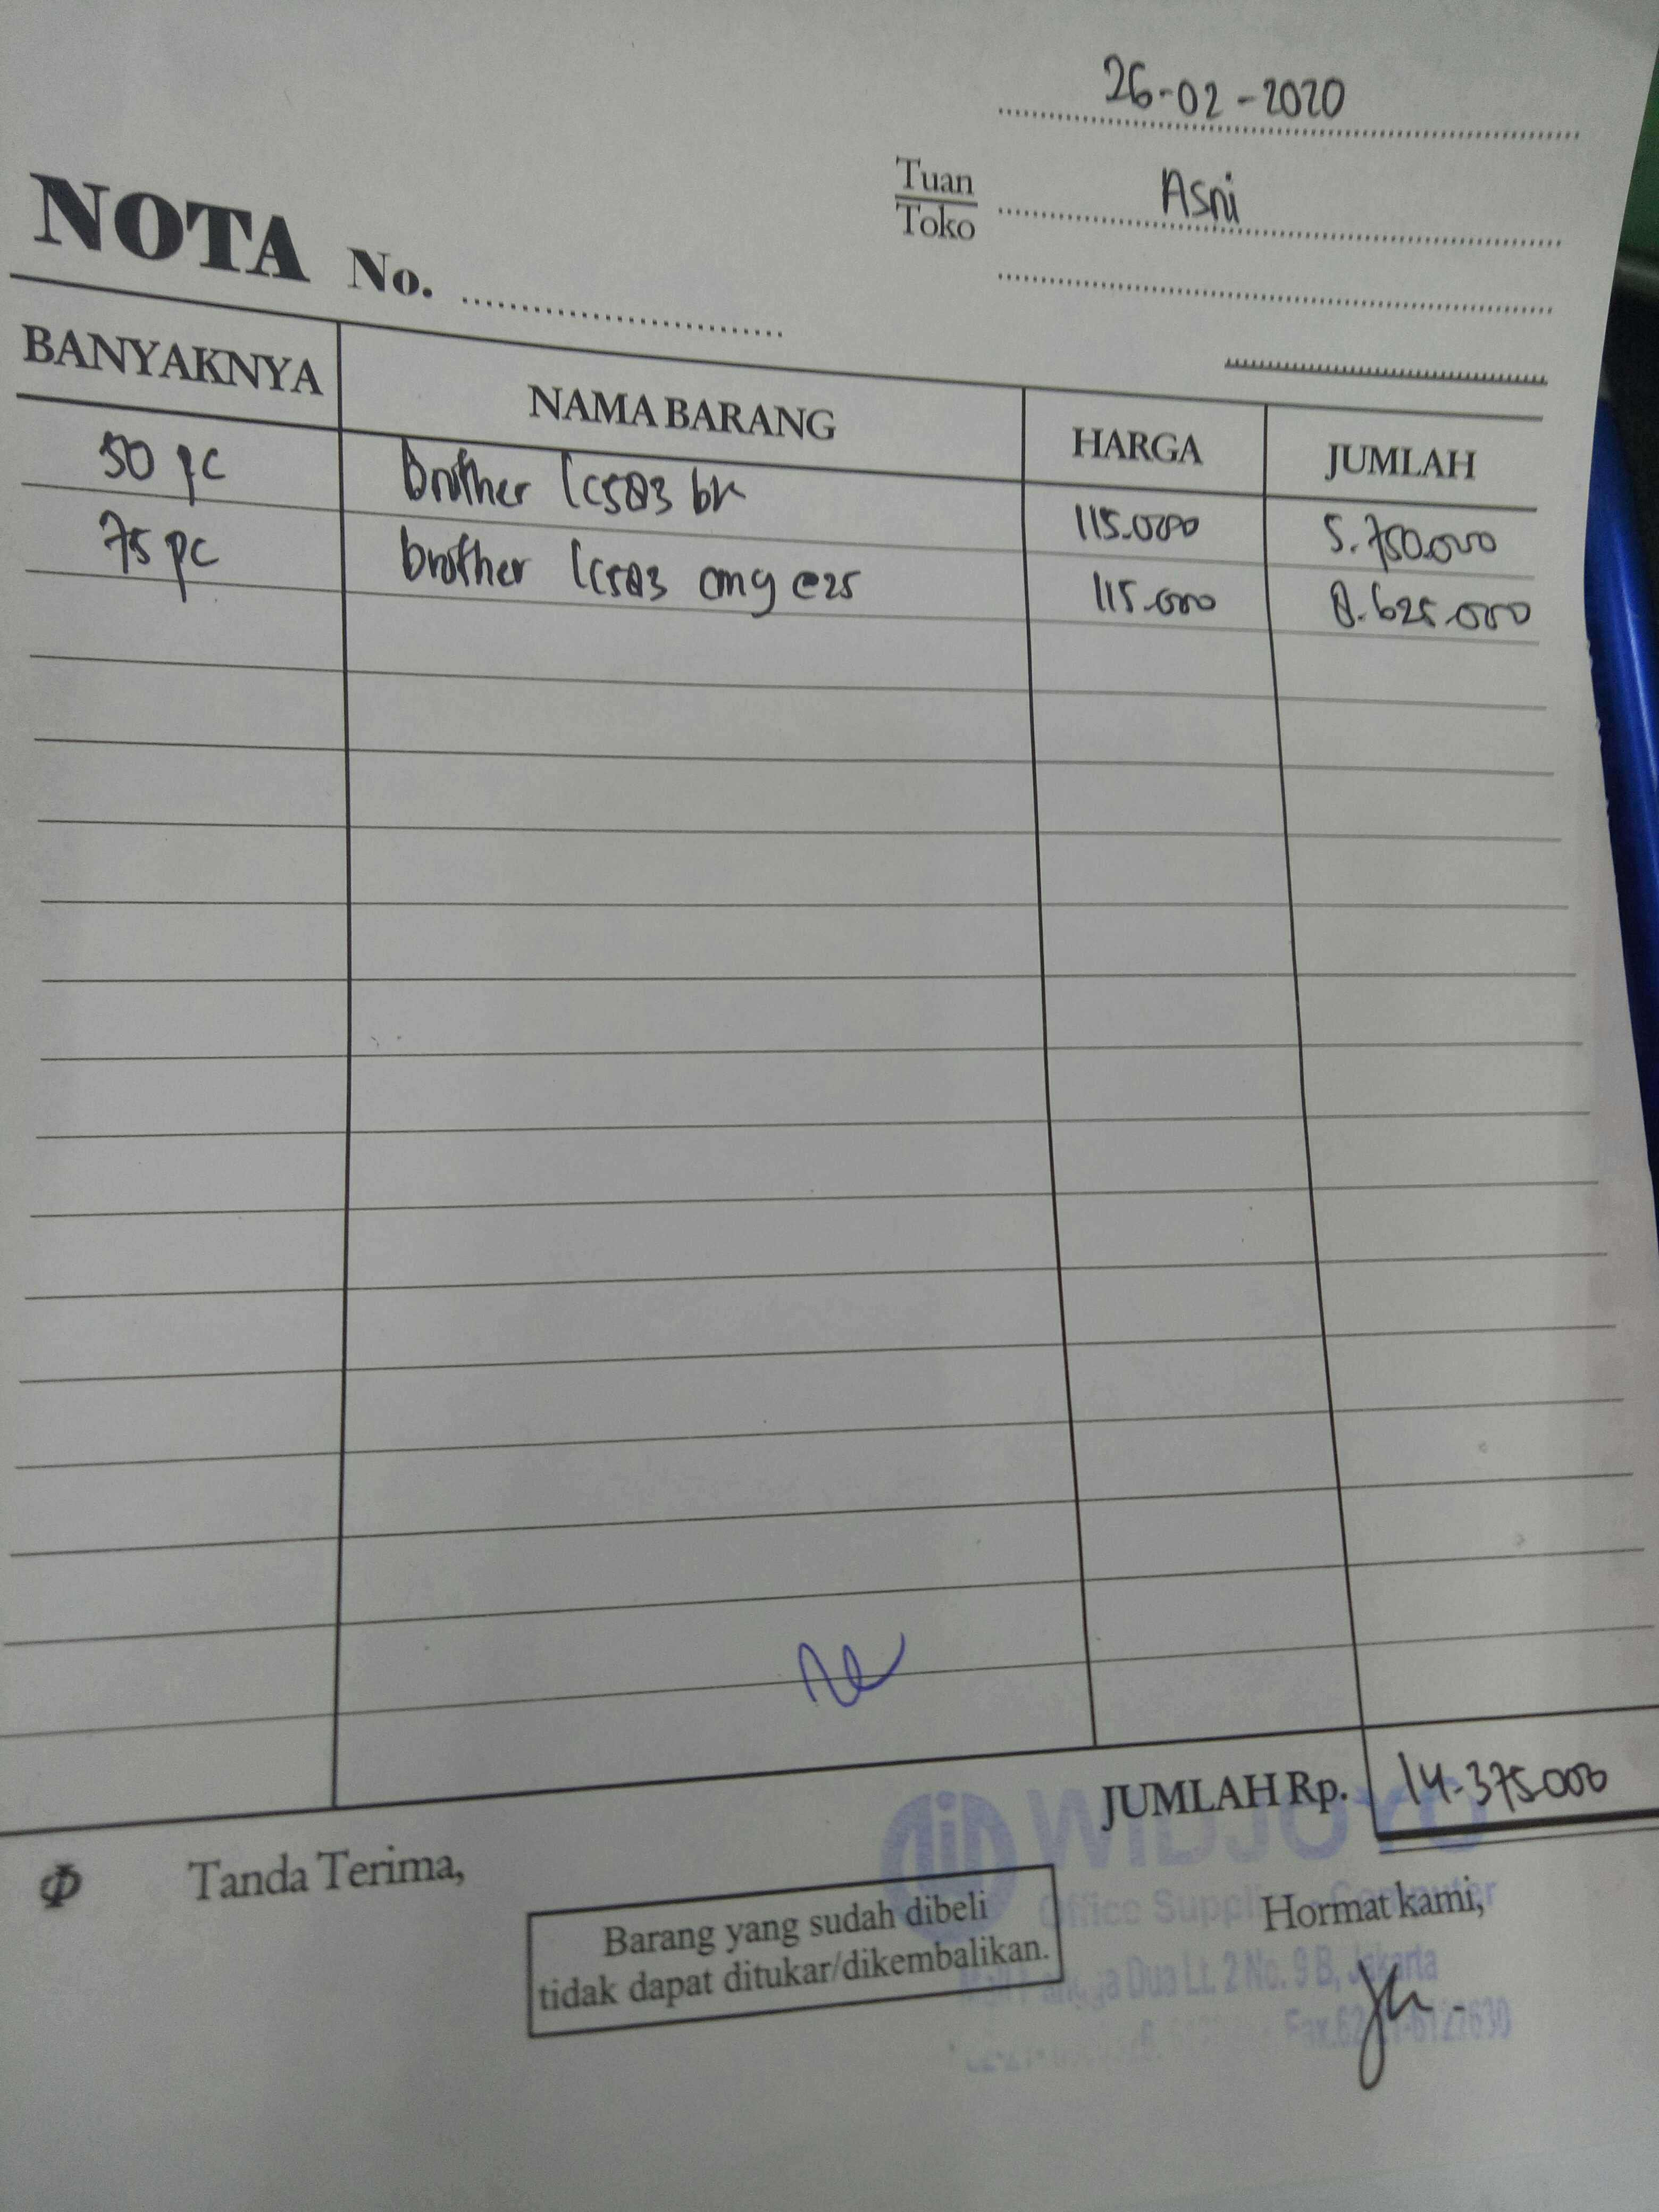 26-02-2020
Tuan
Toko
Asni
NOTA No.
BANYAKNYA NAMA BARANG HARGA JUMLAH
50 pc brother lc583 bk 115.000 5.750.000
75 pc brother lc583 cmy @25 115.000 8.625.000
JUMLAH Rp. 14.375.000
Tanda Terima,
Hormat kami,
Barang yang sudah dibeli
tidak dapat ditukar/dikembalikan.
WIDJOYO
Office Computer
Dua Lt. 2 No. 9 B, Jakarta